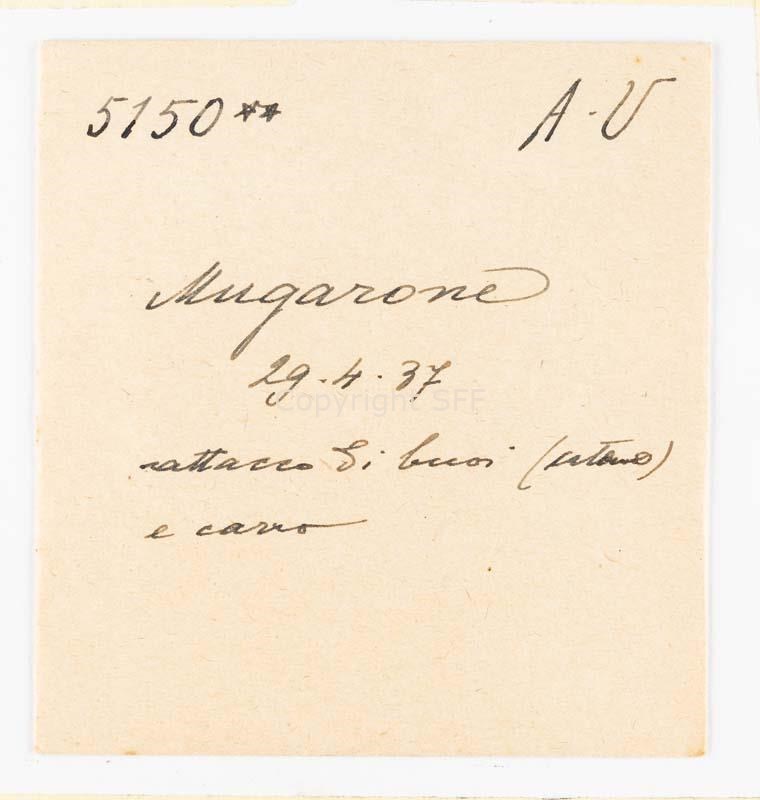 5150** A.V
Mugarone
29.4.37
Copyright SFF
attacco di buoi
e carro